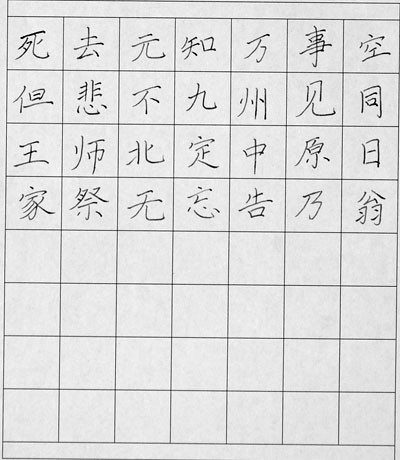 死去元知万事空
但悲不九州见同
王师北定中原日
家祭无忘告乃翁